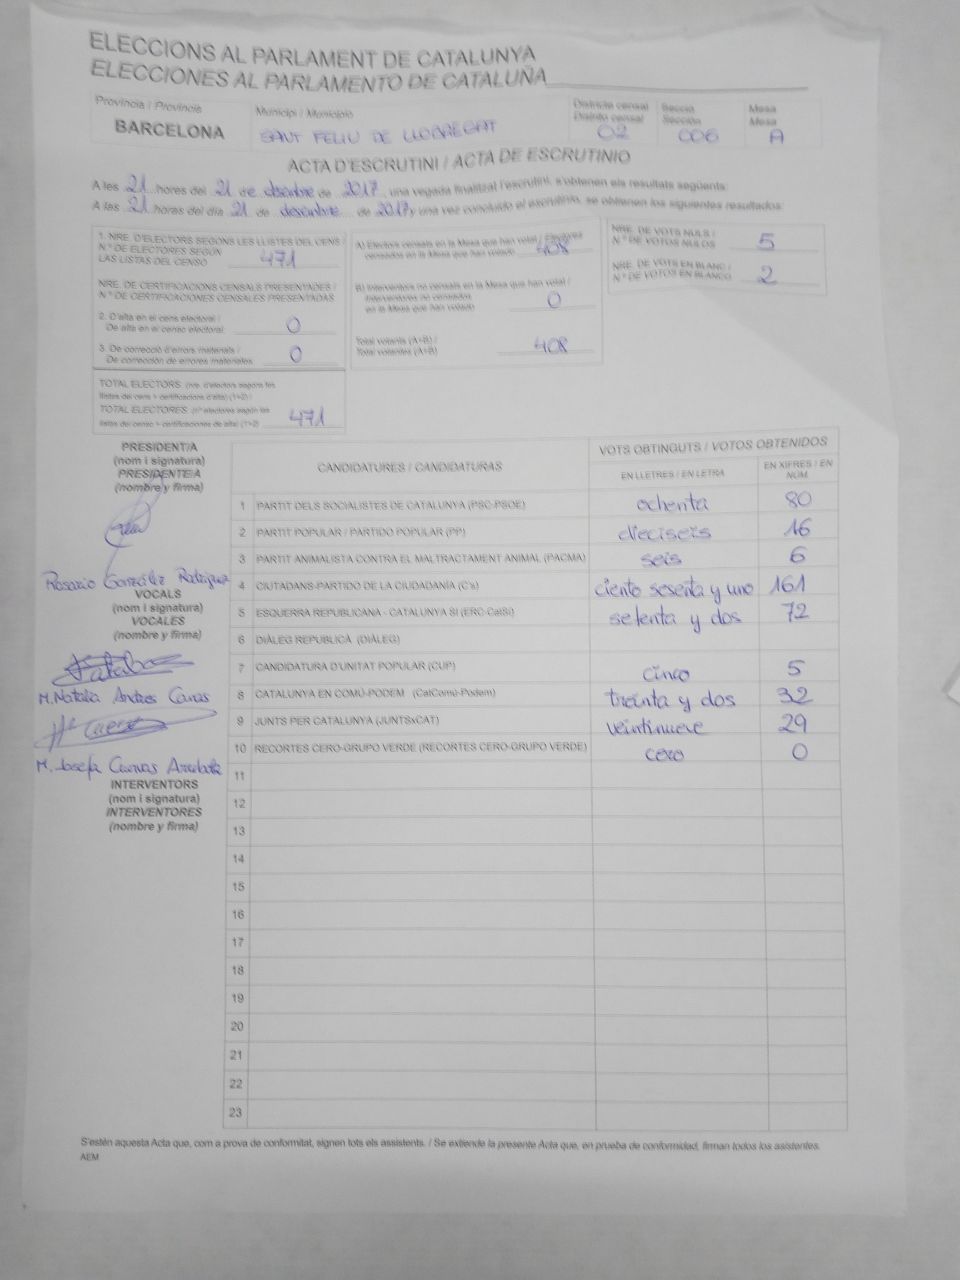 ELECCIONS AL PARLAMENT DE CATALUNYA
ELECCIONES AL PARLAMENTO DE CATALUÑA
Província / Provincia
BARCELONA
Municipi / Municipio
SANT FELIU DE LLOBREGAT
Districte censal
Distrito censal
02
Secció
Sección
006
Mesa
Mesa
A
ACTA D'ESCRUTINI / ACTA DE ESCRUTINIO
A les 21 hores del 21 de desembre de 2017, una vegada finalitzat l'escrutini, s'obtenen els resultats següents:
A las 21 horas del día 21 de desembre de 2017 y una vez concluido el escrutinio, se obtienen los siguientes resultados:
1. NRE. D'ELECTORS SEGONS LES LLISTES DEL CENS /
N.º DE ELECTORES SEGÚN
LAS LISTAS DEL CENSO 471
NRE. DE CERTIFICACIONS CENSALS PRESENTADES /
N.º DE CERTIFICACIONES CENSALES PRESENTADAS
2. D'alta en el cens electoral /
De alta en el censo electoral: 0
3. De correcció d'errors materials /
De corrección de errores materiales: 0
TOTAL ELECTORS: (nre. d'electors segons les
llistes del cens + certificacions d'alta) (1+2) /
TOTAL ELECTORES: (nº electores según las
listas del censo + certificaciones de alta) (1+2) 471
A) Electors censats en la Mesa que han votat / Electores
censados en la Mesa que han votado 408
B) Interventors no censats en la Mesa que han votat /
Interventores no censados
en la Mesa que han votado 0
Total votants (A+B) /
Total votantes (A+B) 408
NRE. DE VOTS NULS /
N.º DE VOTOS NULOS 5
NRE. DE VOTS EN BLANC /
N.º DE VOTOS EN BLANCO 2
PRESIDENT/A
(nom i signatura)
PRESIDENTE/A
(nombre y firma)
Rosario González Rodríguez
VOCALS
(nom i signatura)
VOCALES
(nombre y firma)
M. Natalia Andres
M. Josefa Cuevas
INTERVENTORS
(nom i signatura)
INTERVENTORES
(nombre y firma)
CANDIDATURES / CANDIDATURAS
VOTS OBTINGUTS / VOTOS OBTENIDOS
EN LLETRES / EN LETRA
EN XIFRES / EN NÚM.
1 PARTIT DELS SOCIALISTES DE CATALUNYA (PSC-PSOE) ochenta 80
2 PARTIT POPULAR / PARTIDO POPULAR (PP) dieciseis 16
3 PARTIT ANIMALISTA CONTRA EL MALTRACTAMENT ANIMAL (PACMA) seis 6
4 CIUTADANS-PARTIDO DE LA CIUDADANÍA (C's) ciento sesenta y uno 161
5 ESQUERRA REPUBLICANA - CATALUNYA SÍ (ERC-CatSí) setenta y dos 72
6 DIÀLEG REPUBLICÀ (DIÀLEG)
7 CANDIDATURA D'UNITAT POPULAR (CUP) cinco 5
8 CATALUNYA EN COMÚ-PODEM (CatComú-Podem) treinta y dos 32
9 JUNTS PER CATALUNYA (JUNTSxCAT) veintinueve 29
10 RECORTES CERO-GRUPO VERDE (RECORTES CERO-GRUPO VERDE) cero 0
11
12
13
14
15
16
17
18
19
20
21
22
23
S'estén aquesta Acta que, com a prova de conformitat, signen tots els assistents. / Se extiende la presente Acta que, en prueba de conformidad, firman todos los asistentes.
AEM